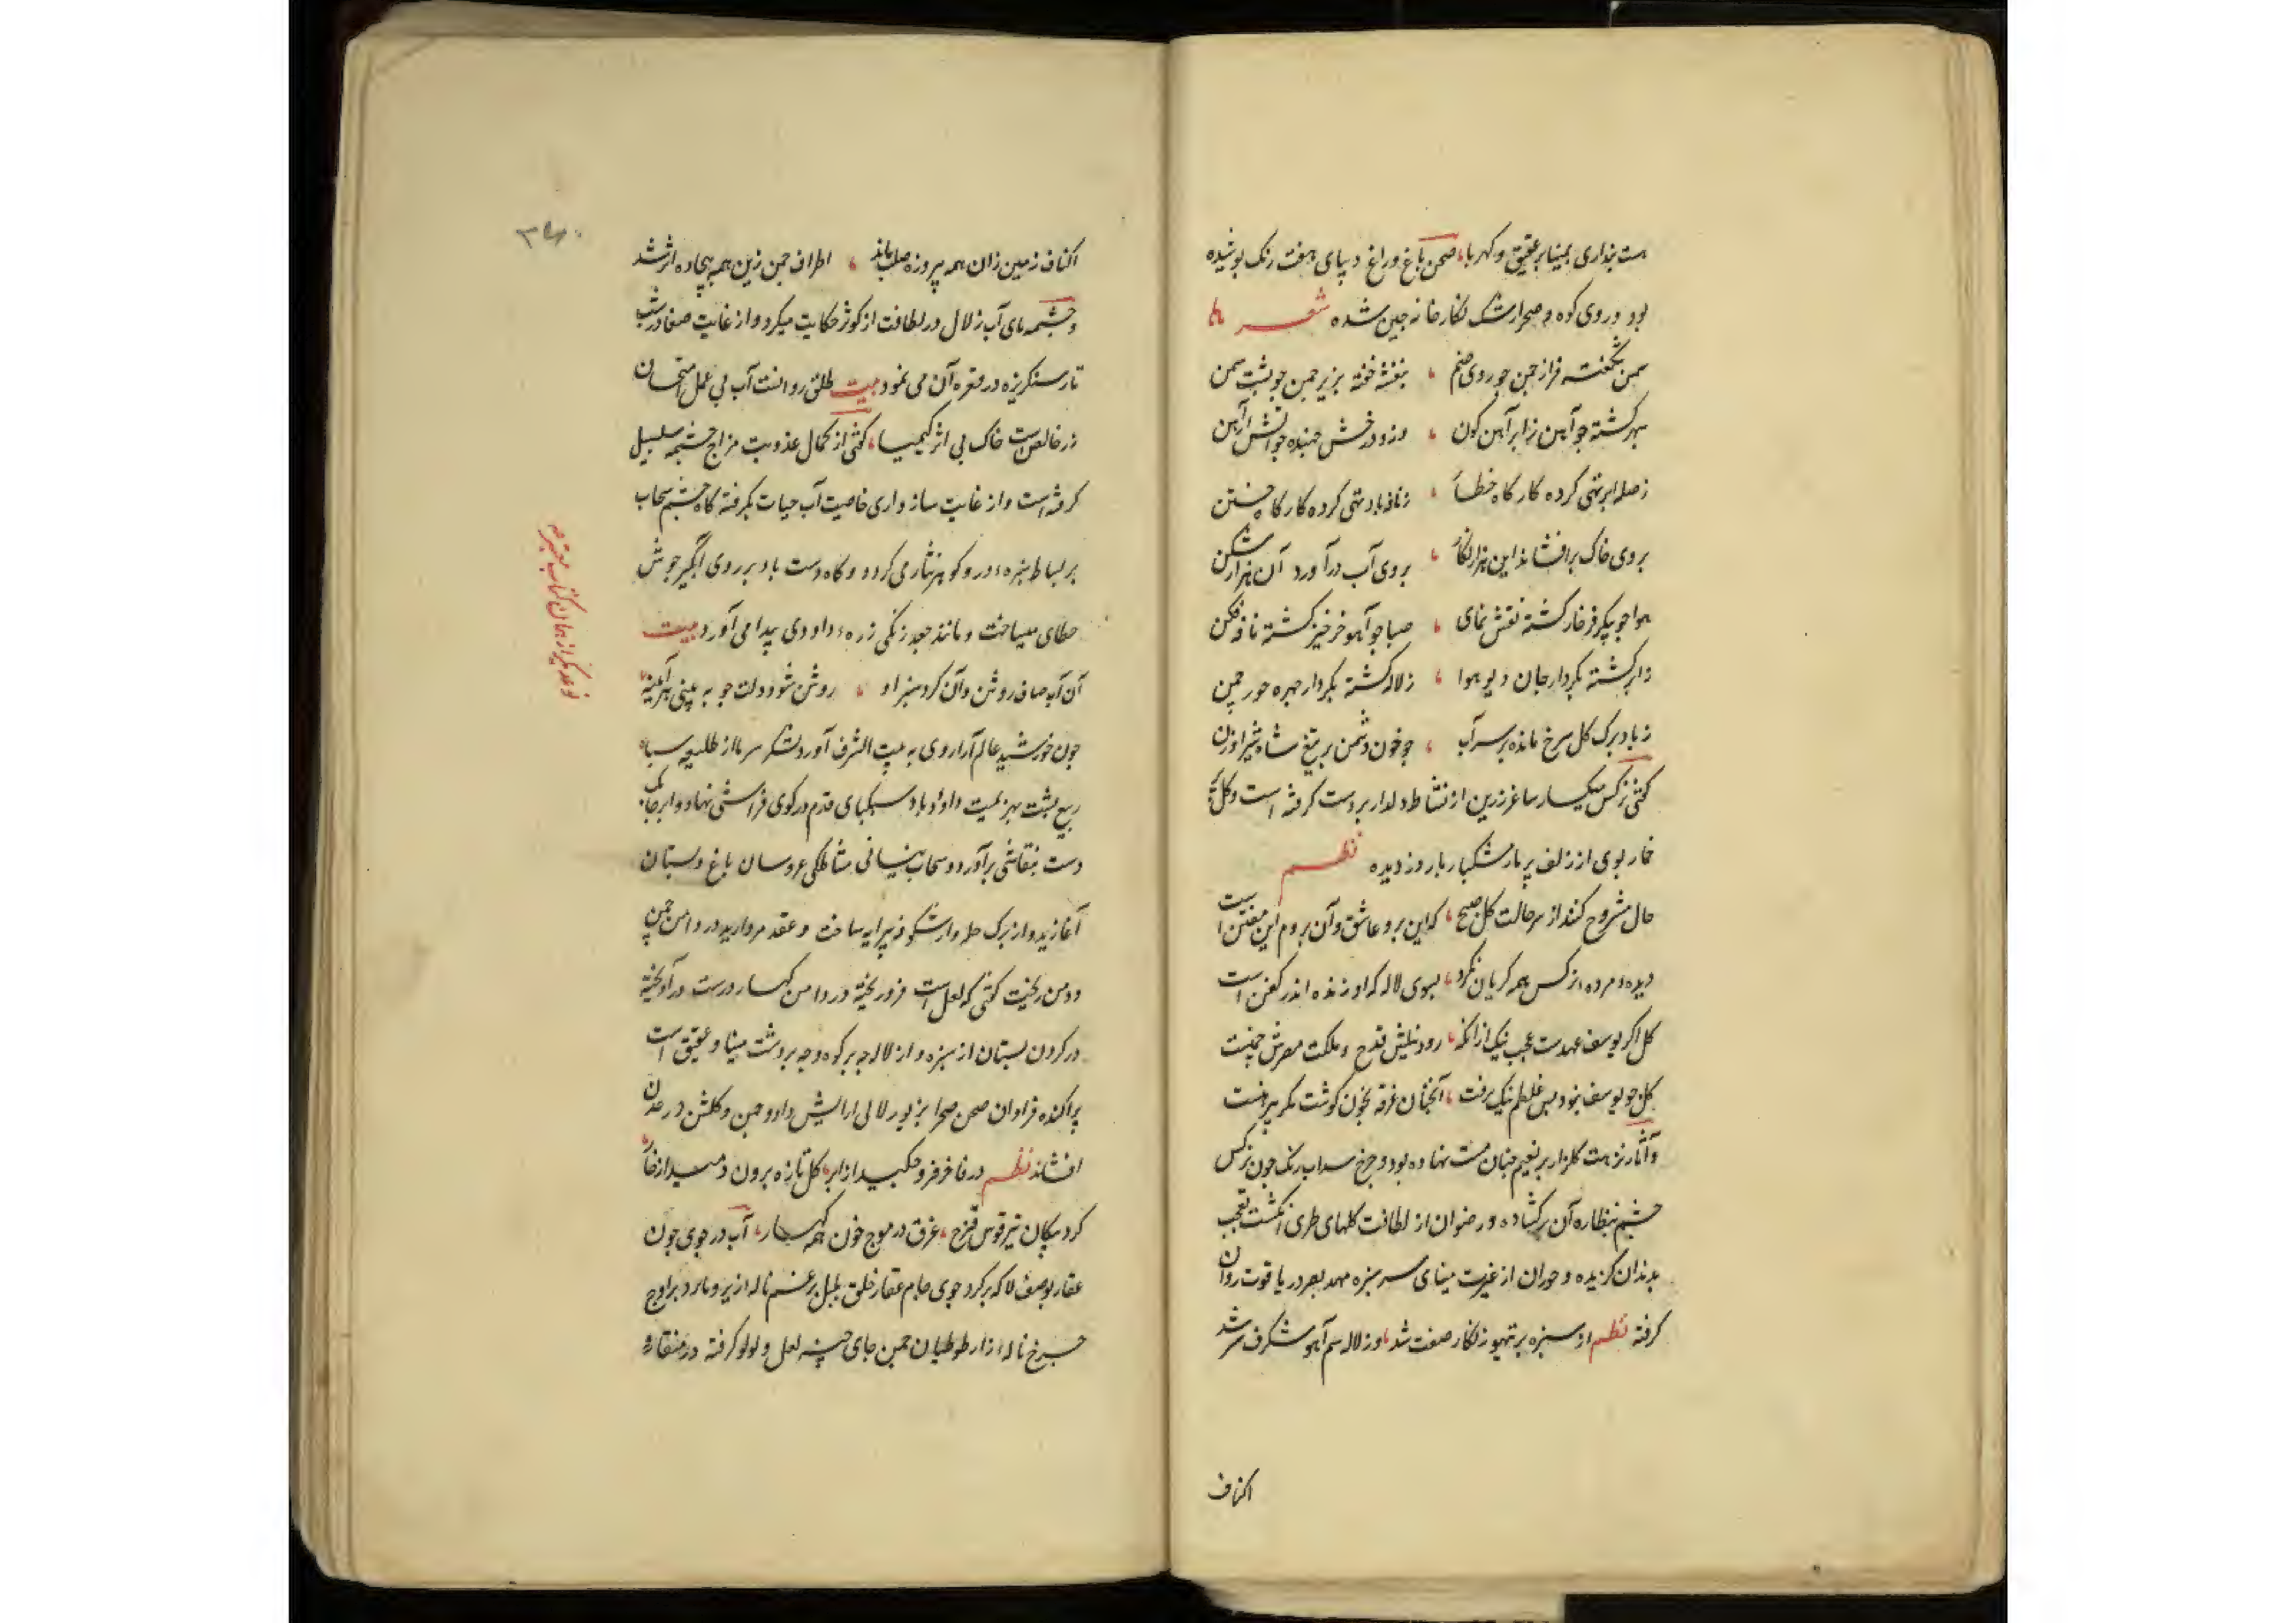 است پنداری بمینا بر عقیق و کهربا، صحن باغ و راغ دیبای هفت رنک پوشیده
بود و روی کوه و صحرا رشک نکارخانه چین شده شعر
سمن شکفته فراز چمن چو روی صنم ، بنفشه خفته بزیر چمن چو پشت سمن
سپهر کشته چو آهن ز ابر آهن کون ، درو درخش جهنده چو آتش از آهن
ز صله ابر تهی کرده کارکاه خطا ، ز نافه باد تهی کرده کارکاه ختن
بروی خاک برافشاند این هزار نکار ، بروی آب درآورد آن هزار شکن
هوا چو پیکر فرخار کشته نقش نمای ، صبا چو آهو خرخیز کشته نافه فکن
ز ابر کشته بکردار جان دیو هوا ، ز لاله کشته بکردار چهره حور چمن
ز باد برک کل سرخ مانده بر سر آب ، چو خون دشمن بر تیغ شاه شیر اوژن
کوئی نرکس میکسار ساغر زرین از نشاط دلدار بر دست کرفته است و کل
خمار بوی از زلف پر بار مشکبار یار دزدیده نظم
حال مشروح کند از سر حالت کل صبح ، که این برو عاشق و آن بر دم این مفتن است
دیده مرده نرکس همه کریان نکرد ، بسوی لاله که او زنده اندر کفن است
کل اکر یوسف عهدست عجب نیک از آنکه ، رود نیلش قدح و ملکت مصرش چمنست
کل چو یوسف نبود پس غلطم نیک برفت ، آنچنان غرقه بخون کوشت مکر پیرهنست
و آثار نزهت کلزار بر نعیم جنان منت نهاده بود و چرخ سداب رنک چون نرکس
چشم بنظاره آن برکشاده و رضوان از لطافت کلهای طری انکشت تعجب
بدندان کزیده و حوران از غیرت مینای سر سبزه مهد بصر در یاقوت روان
کرفته نظم از سبزه پر تیهو زنکار صفت شد ، وز لاله سم آهو شنکرف سر شد
اکناف
اکناف زمین زان همه پیروزه صلب ماند ، اطراف چمن زین همه بیجاده اثر شد
و چشمه‌های آب زلال در لطافت از کوثر حکایت میکرد و از غایت صفا در شب
تار سنکریزه در قعر آن می نمود بیت طلق روانست آب بی عمل امتحان
زر خالص است خاک بی اثر کیمیا ، کوئی از کمال عذوبت مزاج چشمه سلسبیل
کرفته است و از غایت سازواری خاصیت آب حیات بکرفته کاه چشم سحاب
بر بساط سبزه در و کوهر نثار می کرد و کاه دست باد بر روی آبگیر جوش
خطای میساخت و مانند جعد زنکی زره داودی پیدا می آورد بیت
آن آب صاف روشن و آن کرد سبز او ، روشن شود دلت چو به بینی هر آینه
چون خورشید عالم آرا روی به بیت الشرف آورد لشکر سرما از طلیعه سپاه
ربیع پشت بهزیمت داد و باد سبکپای قدم در کوی فراشی نهاد و ابر
دست بنقاشی برآورد و سحاب نیسانی مشاطکی عروسان باغ و بستان
آغازید و از برک حله و از شکوفه پیرایه ساخت و عقد مروارید در دامن چمن
و دمن ریخت کوئی که لعل است فرو ریخته در دامن کهسار درست درآویخته
در کردن بستان از سبزه و از لاله چه بر کوه و چه بر دشت مینا و عقیق است
پراکنده فراوان صحن صحرا بزیور لالی آرایش داد و چمن و کلشن در عدن
افشاند نظم در فاخر فرو چکید از ابر ، کل تازه برون دمید از خار
کرد پیکان تیر قوس قزح ، غرق در موج خون همه کهسار ، آب در جوی چون
عقار بوصف لاله بر کرد جوی جام عقار خلق بلبل بزخم ناله از زیر و مار برد بر اوج
چرخ ناله زار طوطیان چمن جای چینه لعل و لولو کرفته در منقار